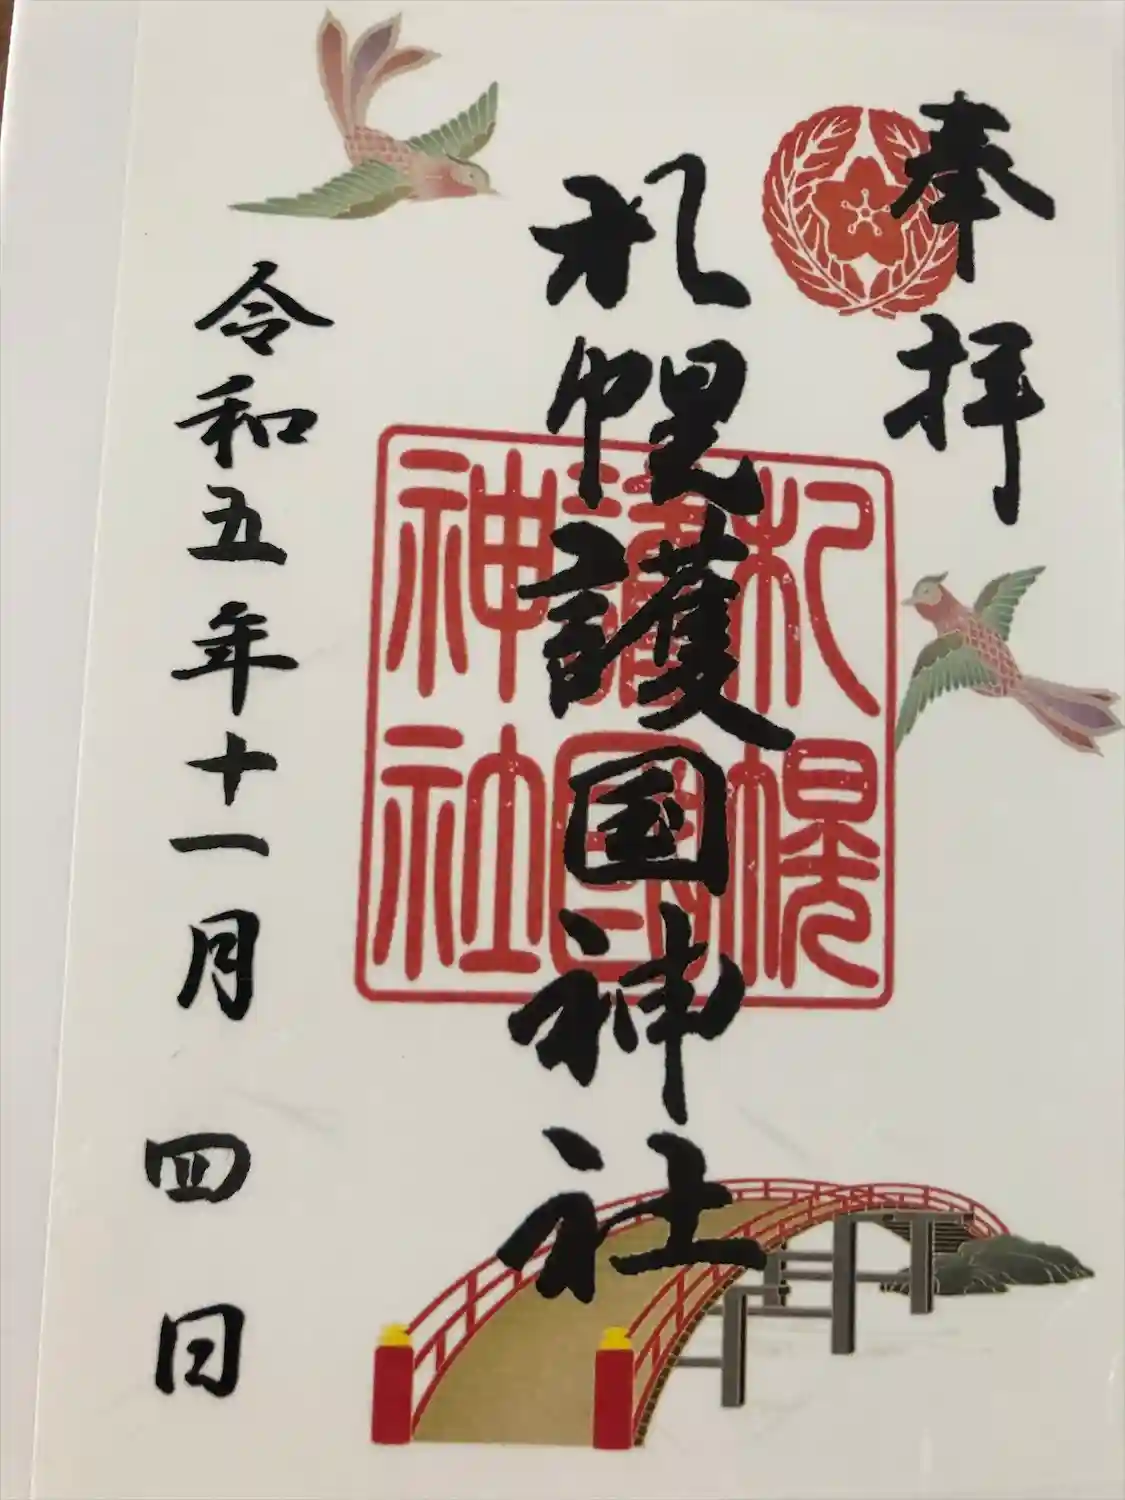 奉拝
札幌護国神社
札幌
護國
神社
令和五年十一月四日